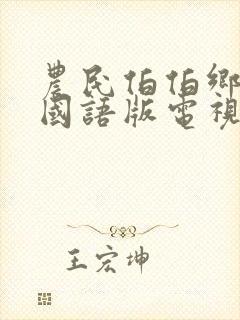 農民伯伯鄉
國語版電視
王宏坤